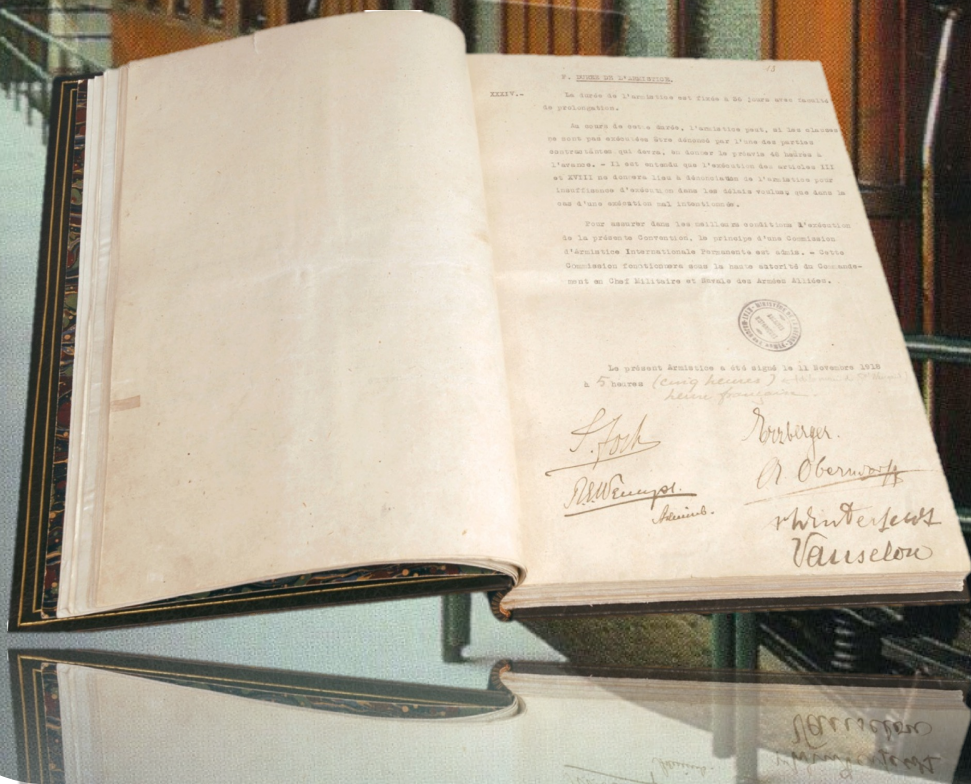 13
F. DUREE DE L'ARMISTICE.
XXXIV.- La durée de l'armistice est fixée à 36 jours avec faculté
de prolongation.
Au cours de cette durée, l'armistice peut, si les clauses
ne sont pas exécutées être dénoncé par l'une des parties
contractantes qui devra, en donner le préavis 48 heures à
l'avance. - Il est entendu que l'exécution des articles III
et XVIII ne donnera lieu à dénonciation de l'armistice pour
insuffisance d'exécution dans les délais voulus, que dans le
cas d'une exécution mal intentionnée.
Pour assurer dans les meilleures conditions l'exécution
de la présente Convention, le principe d'une Commission
d'Armistice Internationale Permanente est admis. - Cette
Commission fonctionnera sous la haute autorité du Commande-
ment en Chef Militaire et Navale des Armées Alliées.
Le présent Armistice a été signé le 11 Novembre 1918
à 5 heures (cinq heures)
heure française.
F. Foch
Erzberger.
R.E. Wemyss.
A Oberndorff
Admiral.
v Winterfeldt
Vanselow